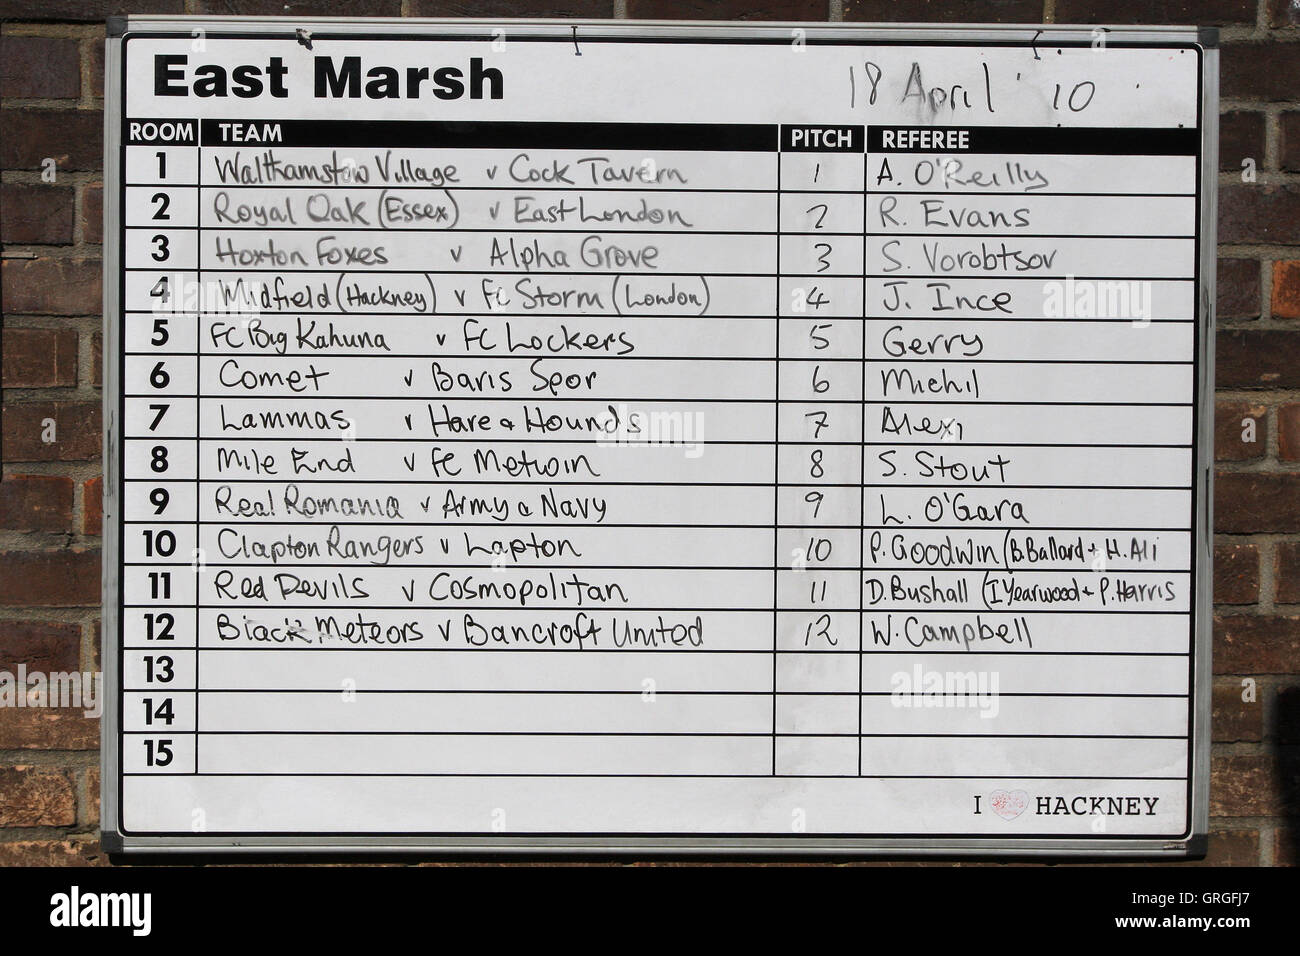 East Marsh 18 April '10
ROOM TEAM PITCH REFEREE
1 Walthamstow Village v Cock Tavern 1 A. O'Reilly
2 Royal Oak (Essex) v East London 2 R. Evans
3 Hoxton Foxes v Alpha Grove 3 S. Vorobtsov
4 Midfield (Hackney) v FC Storm (London) 4 J. Ince
5 FC Big Kahuna v FC Lockers 5 Gerry
6 Comet v Baris Spor 6 Michil
7 Lammas v Hare & Hounds 7 Alexi
8 Mile End v FC Metwin 8 S. Stout
9 Real Romania v Army & Navy 9 L. O'Gara
10 Clapton Rangers v Lapton 10 P. Goodwin (B. Ballard + H. Ali
11 Red Devils v Cosmopolitan 11 D. Bushall (I Yearwood + P. Harris
12 Black Meteors v Bancroft United 12 W. Campbell
13
14
15
I HACKNEY
alamy stock photo
GRGFJ7
www.alamy.com